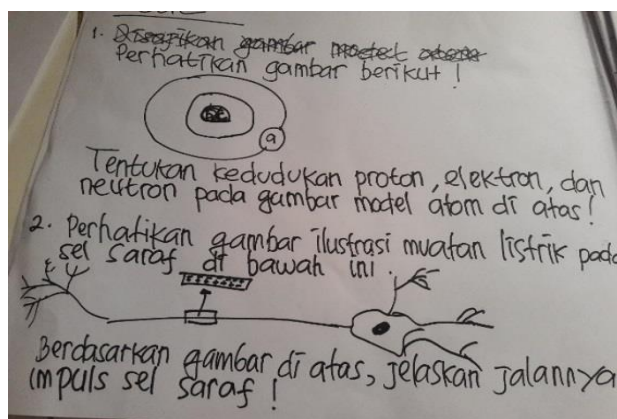 1. Disajikan gambar
Perhatikan gambar berikut !
a
Tentukan kedudukan proton, elektron, dan
neutron pada gambar model atom di atas!
2. Perhatikan gambar ilustrasi muatan listrik pada
sel saraf di bawah ini.
Berdasarkan gambar di atas, jelaskan jalannya
impuls sel saraf !